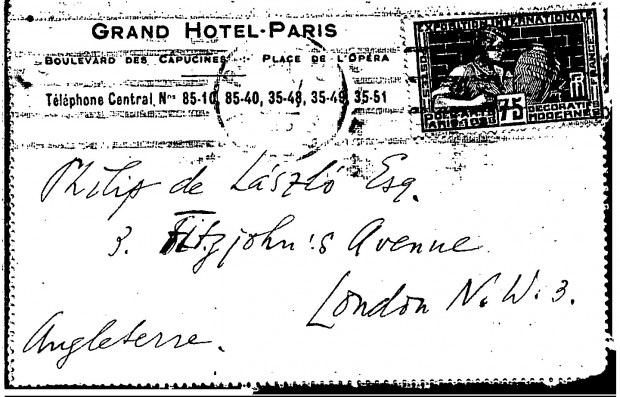 GRAND HOTEL-PARIS
BOULEVARD DES CAPUCINES PLACE DE L'OPÉRA
Téléphone Central, Nos 85-10, 85-40, 35-48, 35-49, 35-51
EXPOSITION INTERNATIONALE
POSTES
FRANCE
75
DECORATIFS
MODERNES
Philip de László Esq.
3. Fitzjohn's Avenue
London N.W.3.
Angleterre.